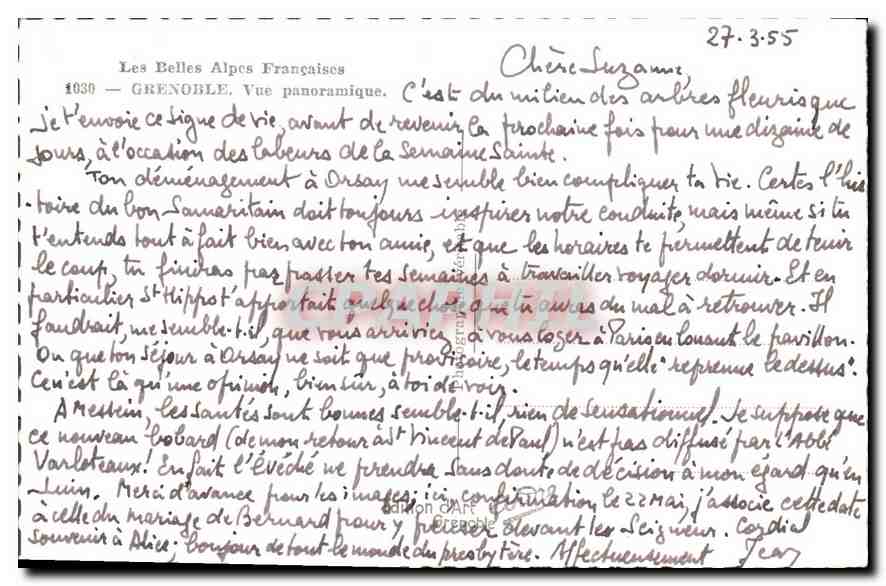 27.3.55
Les Belles Alpes Françaises
Chère Suzanne,
1030 — GRENOBLE. Vue panoramique.
C'est du milieu des arbres fleuris que
je t'envoie ce signe de vie, avant de revenir la prochaine fois pour une dizaine de
jours, à l'occasion des labeurs de la Semaine Sainte.
Ton déménagement à Orsay me semble bien compliquer ta vie. Certes l'his
-toire du bon Samaritain doit toujours inspirer notre conduite, mais même si tu
t'entends tout à fait bien avec ton amie, et que les horaires te permettent de tenir
le coup, tu finiras par passer tes semaines à travailler voyager dormir. Et en
particulier St Hipp t'apportait quelque chose que tu auras du mal à retrouver. Il
faudrait, me semble-t-il, que vous arriviez à vous loger à Paris en louant le pavillon.
Ou que ton séjour à Orsay ne soit que provisoire, le temps qu'elle "reprenne le dessus".
Ce n'est là qu'une opinion, bien sûr, à toi de voir.
A Messein, les santés sont bonnes semble-t-il, rien de sensationnel. Je suppose que
ce nouveau bobard (de mon retour à St Vincent de Paul) n'est pas diffusé par l'Abbé
Varloteaux! En fait l'Évêché ne prendra sans doute de décision à mon égard qu'en
Juin. Merci d'avance pour les images; ici, confirmation le 22 Mai, j'associe cette date
à celle du mariage de Bernard pour y penser devant le Seigneur. Cordial
souvenir à Alice; bonjour de tout le monde du presbytère. Affectueusement Jean
Edition d'Art
Grenoble